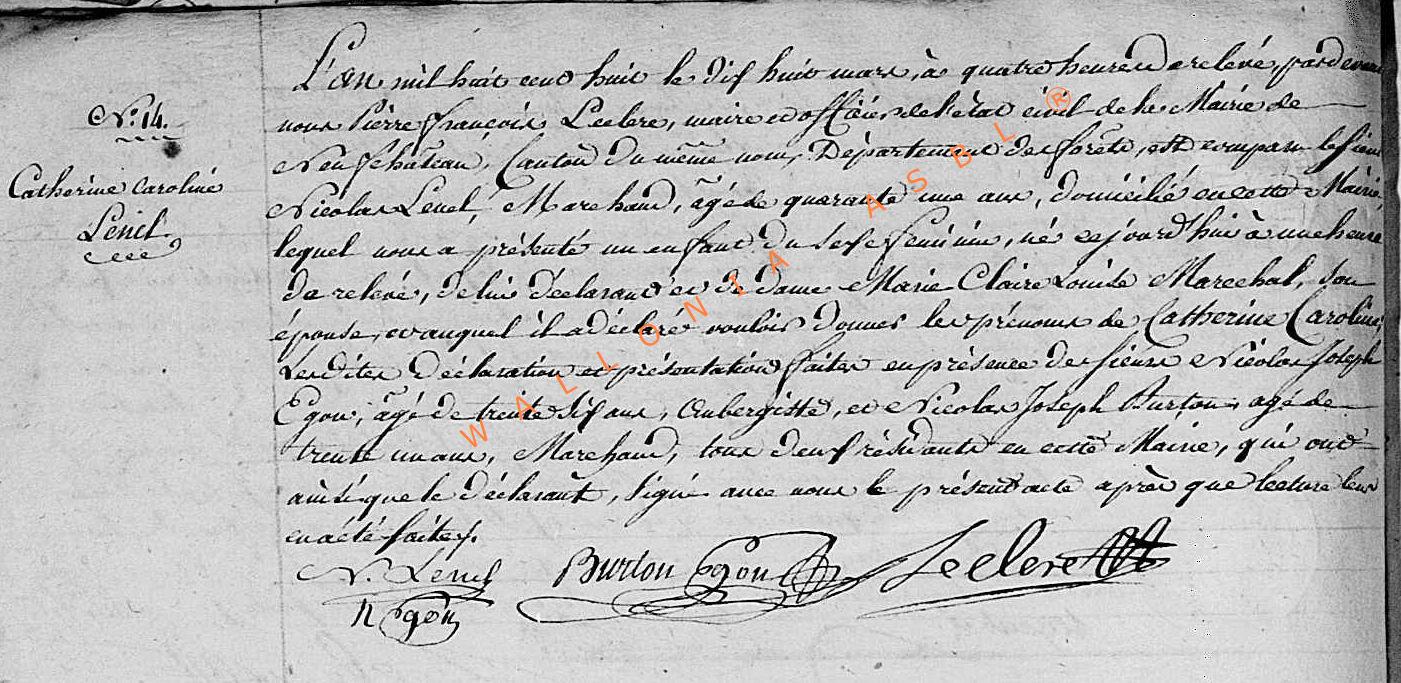 N.° 14.
Catherine Caroline
Lenel.
L'an mil huit cent huit le dix huit mars, à quatre heures de relevé, pardevant
nous Pierre françois Leclere, maire et officier de l'état civil de la Mairie de
Neufchâteau, Canton du même nom, Département des forêts, est comparu le sieur
Nicolas Lenel, Marchand, âgé de quarante une ans, domicilié en cette Mairie,
lequel nous a présenté un enfant du sexe féminin, né cejourd'hui à une heure
de relevé, de lui déclarant et de dame Marie Claire Louise Marechal, son
épouse, et auquel il a déclaré vouloir donner les prénoms de Catherine Caroline,
Lesdites déclaration et présentation faites en présence des sieurs Nicolas Joseph
Egon, âgé de trente six ans, Aubergiste, et Nicolas Joseph Burton, agé de
trente un ans, Marchand, tous deux résidants en cette Mairie, qui ont
ainsi que le déclarant, signé avec nous le présent acte après que lecture leur
en a été faite.
N. Lenel Burton Egon Leclere
n Egon
WALLONIA ASBL ®